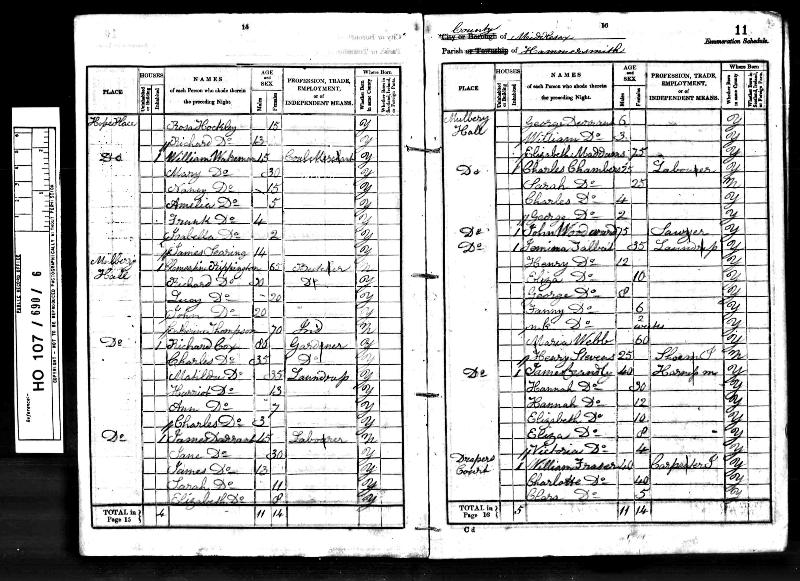 PUBLIC RECORD OFFICE
Reference:-
HO 107 / 690 / 6
COPYRIGHT - NOT TO BE REPRODUCED PHOTOGRAPHICALLY WITHOUT PERMISSION
15
PLACE
HOUSES
Uninhabited or Building
Inhabited
NAMES of each Person who abode therein the preceding Night.
AGE and SEX
Males
Females
PROFESSION, TRADE, EMPLOYMENT, or of INDEPENDENT MEANS.
Where Born
Whether Born in same County
Whether Born in Scotland, Ireland, or Foreign Parts.
Hope Place Rosa Hockley 15 Y
Richard Do 13 Y
Do 1 William Wakeman 45 Coal Merchant Y
Mary Do 30 Y
Nancy Do 15 Y
Amelia Do 5 Y
Frank Do 4 Y
Isabella Do 2 Y
James Gearing 14 Y
Mulbery Hall 1 65 Butcher N
Richard Do 20 Do Y
Lucy Do 20 Y
John Do 20 Y
Thompson 70 Ind N
Do 1 Richard Cox 80 Gardener Y
Charles Do 35 Do Y
Matilda Do 35 Laundress Y
Harriot Do 13 Y
Ann Do 7 Y
Charles Do 3 Y
Do 1 James 45 Labourer N
Jane Do 30 Y
James Do 13 Y
Sarah Do 11 Y
Elizabeth Do 8 Y
TOTAL in Page 15 } 4 11 14
16
11
County
City or Borough of Middlesex
Parish or Township of Hammersmith
Enumeration Schedule.
PLACE
HOUSES
Uninhabited or Building
Inhabited
NAMES of each Person who abode therein the preceding Night.
AGE and SEX
Males
Females
PROFESSION, TRADE, EMPLOYMENT, or of INDEPENDENT MEANS.
Where Born
Whether Born in same County
Whether Born in Scotland, Ireland, or Foreign Parts.
Mulbery Hall George 6 Y
William Do 3 Y
Elizabeth 75 Y
Do 1 Charles Chambers 25 Labourer Y
Sarah Do 25 N
Charles Do 4 Y
George Do 2 Y
Do 1 John Woodward 75 Sawyer Y
Do 1 Jemima Talbot 35 Laundress Y
Henry Do 12 Y
Eliza Do 10 Y
George Do 8 Y
Fanny Do 6 Y
Do 2 weeks Y
Maria Webb 60 Y
Henry Stevens 25 Shoem J N
Do 1 James 40 Harness m Y
Hannah Do 30 Y
Hannah Do 12 Y
Elizabeth Do 10 Y
Eliza Do 8 Y
Victoria Do 4 Y
Drapers Court 1 William Fraser 40 Carpenter J Y
Charlotte Do 40 Y
Clara Do 5 Y
TOTAL in Page 16 } 5 11 14
C d